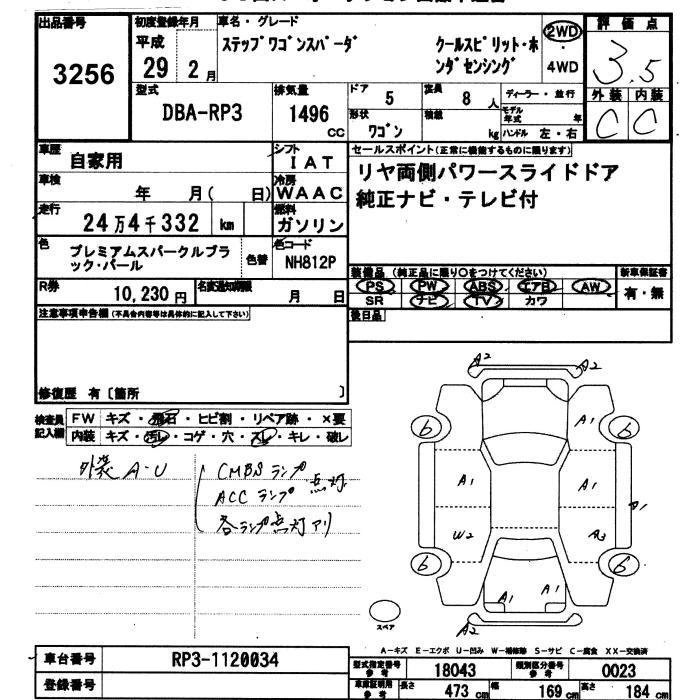 出品番号
3256
初度登録年月
平成
29年 2月
車名・グレード
ステップワゴンスパーダ
クールスピリット・ホ
ンダセンシング
2WD
4WD
評価点
3.5
外装 内装
C C
型式
DBA-RP3
排気量
1496
CC
ドア
5
定員
8 人
形状
ワゴン
積載
kg
ディーラー・並行
モデル年式 年
ハンドル 左・右
車歴
自家用
シフト
IAT
車検
年 月( 日)
冷房
WAAC
走行
24万4千332 km
燃料
ガソリン
色
プレミアムスパークルブラ
ック・パール
色替
色コード
NH812P
R券
10,230円
名変通知期限
月 日
セールスポイント(正常に機能するものに限ります)
リヤ両側パワースライドドア
純正ナビ・テレビ付
装備品 (純正品に限り○をつけてください)
新車保証書
PS PW ABS エアB AW
有・無
SR ナビ TV カワ
後日品
注意事項申告欄(不具合内容等は具体的に記入して下さい)
修復歴 有〔箇所 〕
検査員
記入欄
FW キズ・飛石・ヒビ割・リペア跡・×要
内装 キズ・汚レ・コゲ・穴・スレ・キレ・破レ
外装 A-U
CMBSランプ
ACCランプ 点灯
各ランプ点灯アリ
A2
A2
A1
6
6
A1
A1
A1
W2
A3
6
6
A1
A1
A2
スペア
A-キズ E-エクボ U-凹み W-補修跡 S-サビ C-腐食 XX-交換済
車台番号
RP3-1120034
登録番号
型式指定番号
参考
18043
類別区分番号
参考
0023
車庫証明用
参考
長さ
473 cm
幅
169 cm
高さ
184 cm